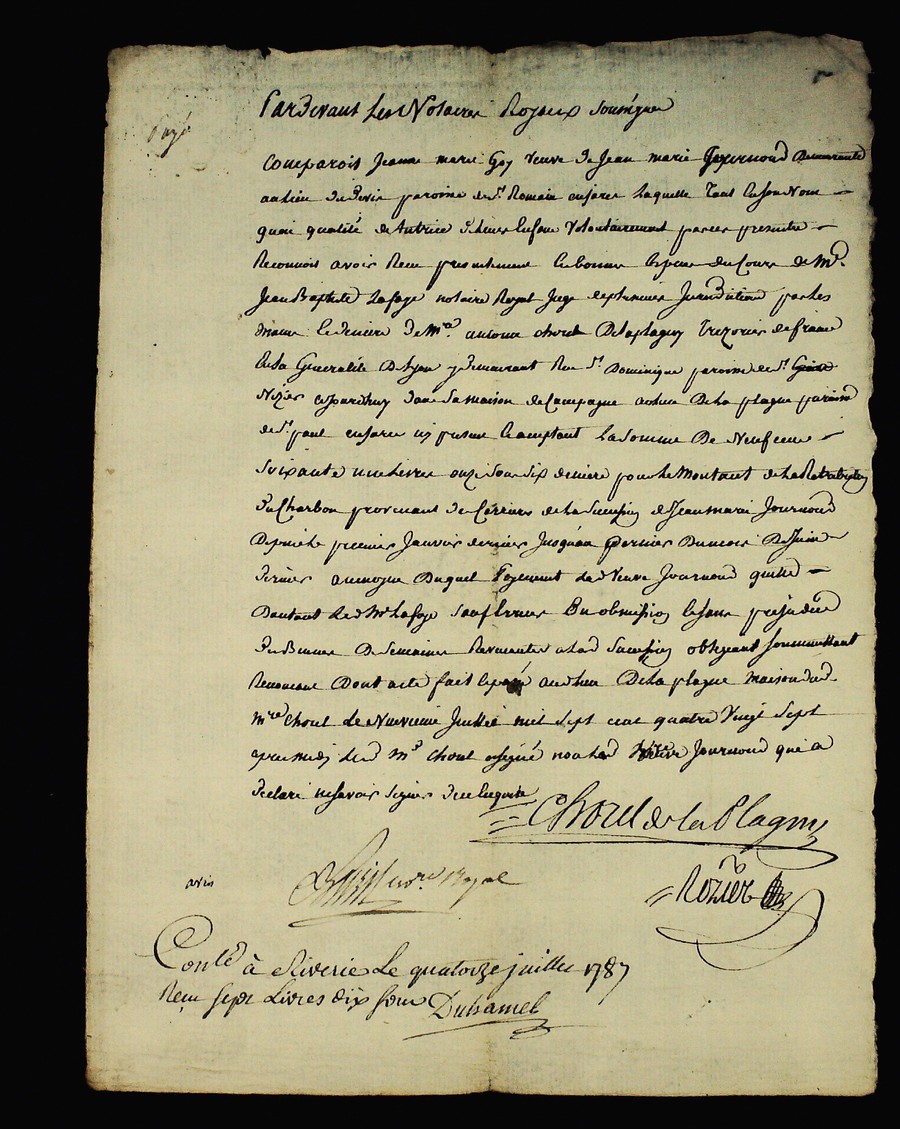 Pardevant Les Notaires Royaux Soussignés
payé
Comparois Jeanne marie Guy veuve de Jean marie Journoud demeurante
au lieu de paroisse de St Romain en jares laquelle Tant en son Nom
quen qualité de tutrice de leurs Enfans Volontairement par ces presentes
Reconnois avoir Recu presentement en bonnes Especes du Cours de Mre
Jean Baptiste Lafaye notaire Royal Juge des premier Jurisdiction par les
mains et deniers de Mre antoine chorel Delaplagny Trezorier de france
En la Generalité De Lyon y demeurant Rue St Dominique paroisse de St
Nizier aujourdhuy dans Sa maison de Campagne au lieu De La plagne paroisse
de St paul en jares ici present Et acceptant La Somme De Neuf cens
Soixante une Livres onze Sous Six deniers pour le Montant de la Retribution
du Charbon provenant de Carriere de la Succession de Jean marie Journoud
Depuis le premier Janvier dernier Jusqu'au Dernier Du mois De Juin
dernier au moyen Duquel Payement lad Veuve Journoud quitte
Dautant led Mr Lafaye Sauf Erreur Ou obmission Et sans prejudice
De Semaines a lad Succession obligeant Soumettant
Renoncant Dont acte fait Et passé au lieu De La plagne maison dud
Mre chorel Le Neuvieme Juillet mil Sept cent quatre Vingt Sept
apres midy led Mr Chorel a signé non lad Veuve Journoud qui a
declaré ne savoir Signer De ce Enquite
Chorel de la Plagny
avis
nre Royal
Rozier
Conlé à Riverie Le quatorze juillet 1787
Recu Sept Livres dix sous Duhamel